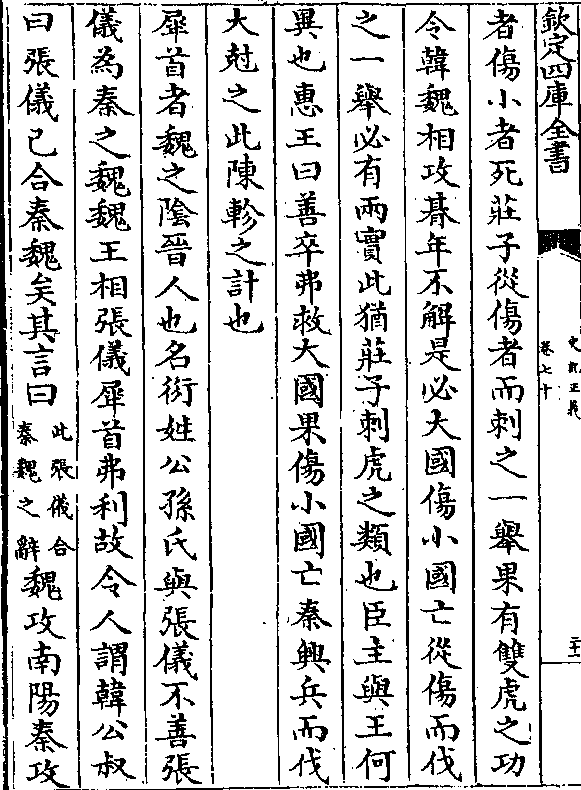 欽定四庫全書
史記正義
卷七十
者傷小者死莊子從傷者而刺之一舉果有雙虎之功
令韓魏相攻朞年不解是必大國傷小國亡從傷而伐
之一舉必有兩實此猶莊子刺虎之類也臣主與王何
異也惠王曰善卒弗救大國果傷小國亡秦興兵而伐
大尅之此陳軫之計也
犀首者魏之隂晉人也名衍姓公孫氏與張儀不善張
儀為秦之魏魏王相張儀犀首弗利故令人謂韓公叔
曰張儀已合秦魏矣其言曰此張儀合秦魏之辭魏攻南陽秦攻